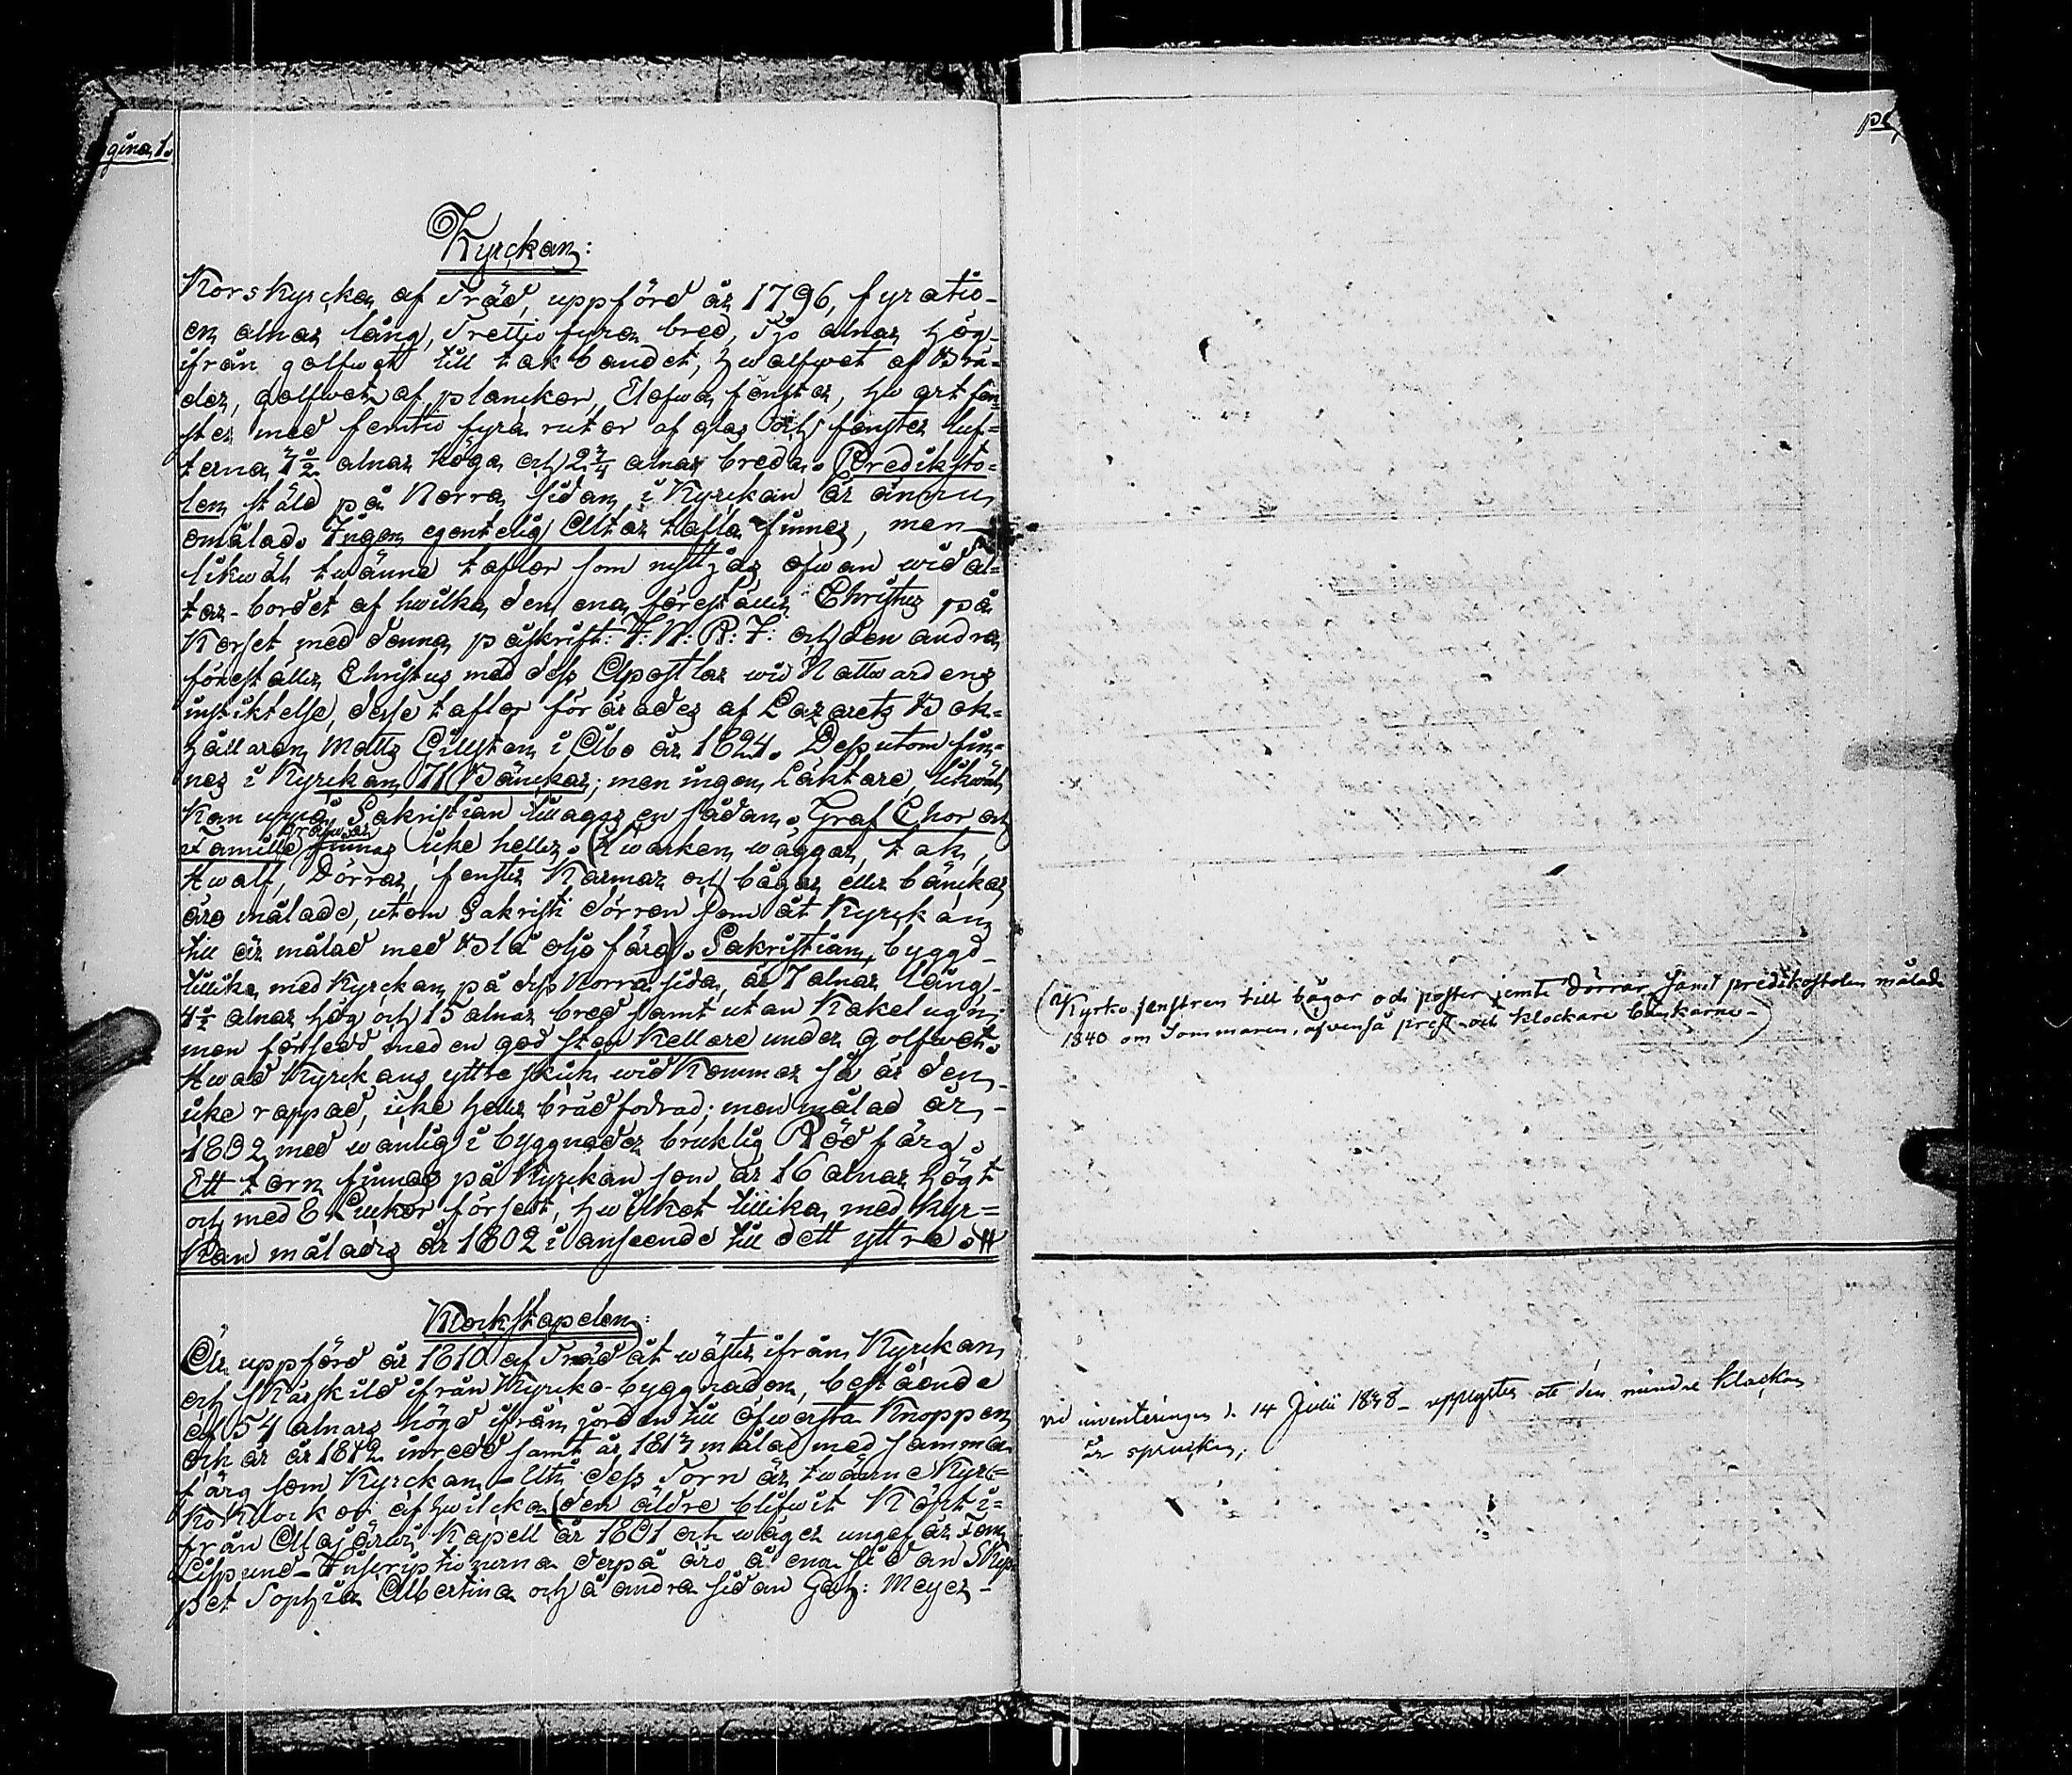 gina 1.
Kyrckan:
Korskyrcka af Träd, uppförd år 1796, fyratio-
en alnar lång, Trettio fyra bred, Tjo alnar hög
ifrån golfwet till takbandet, hwalfwet af Brä-
der, golfwet af planckor, Elofwa fönster, hwart fön-
ster med femtio fyra rutor af glas och fönster luf-
terna alnar höga och 2 3/4 alnar breda. Prediksto-
len stäld på Norra sidan i Kyrckan är ännu
omålad. Ingen egentelig Altar tafla finnes, men
likwäl twänne taflor som nyttjas ofwan wid al-
tar-bordet af hwilka den ena föreställer Christus på
Korset med denna påskrift: I: N: R: I: och den andra
föreställer Christus med dess Apostlar wid Nattwardens
instiktelse, desse taflor förärades af Lazarets Bok-
hållaren Matts Gillsten i Åbo år 1824. Dessutom fin-
nes i Kyrckan Bänckar; men ingen Läktare, likwäl
Kan uppå Sakristian tillagas en sådan. Graf Chor och
Familie grafwar finnes icke heller. (Hwarken wäggar, tak,
Hwalf, Dörrar, fenster Karmar och bågar eller bänckar
äro målade, utom Sakristi dörren som åt Kyrckan
till är målad med Blå oljo färg). Sakristian, byggd
tillika med Kyrckan på dess Norra sida, är 7 alnar lång
4 1/2 alnar hög och 15 alnar bred samt utan Kakelugn;
men försedd med en god sten Kellare under golfwet.
Hwad Kyrckans yttre skick widkommer så är den
icke rappad, icke heller brädfodrad; men målad år
1802 med wanlig i byggnader bruklig Röd färg.
Ett torn finnes på Kyrckan som är 16 alnar högt
och med 8 Luckor försedt, hwilket tillika med Kyr-
kan målades år 1802 i anseende till dett yttre.
Klockstapelen:
Är uppförd år 1810 af Träd åt wäster ifrån Kyrckan
och särskild ifrån Kyrcko-byggnaden, bestående
af 54 alnars högd ifrån jorden till öfwersta Knoppen
och är år 1812 inredd samt år 1813 målad med samma
färg som Kyrckan. - Uti dess Torn är twänne Kyr-
ko Klockor af hwilcka (den äldre blifwit Köpt i-
från Kapell år 1801 och wäger ungefär Fem
Lispund - Inscriptionerna derpå äro å ena sidan Skep-
pet Sophia Albertina och å andra sidan Gerh: Meyer -
(Kyrko fenstren till bågar och poster jemte Dörrar samt predikostolen målade
1840 om Sommaren, äfvenså prest och klockare bänkarne -)
vid inventeringen d. 14 Julii 1848 - upplystes att den mindre Klockan
är sprucken;